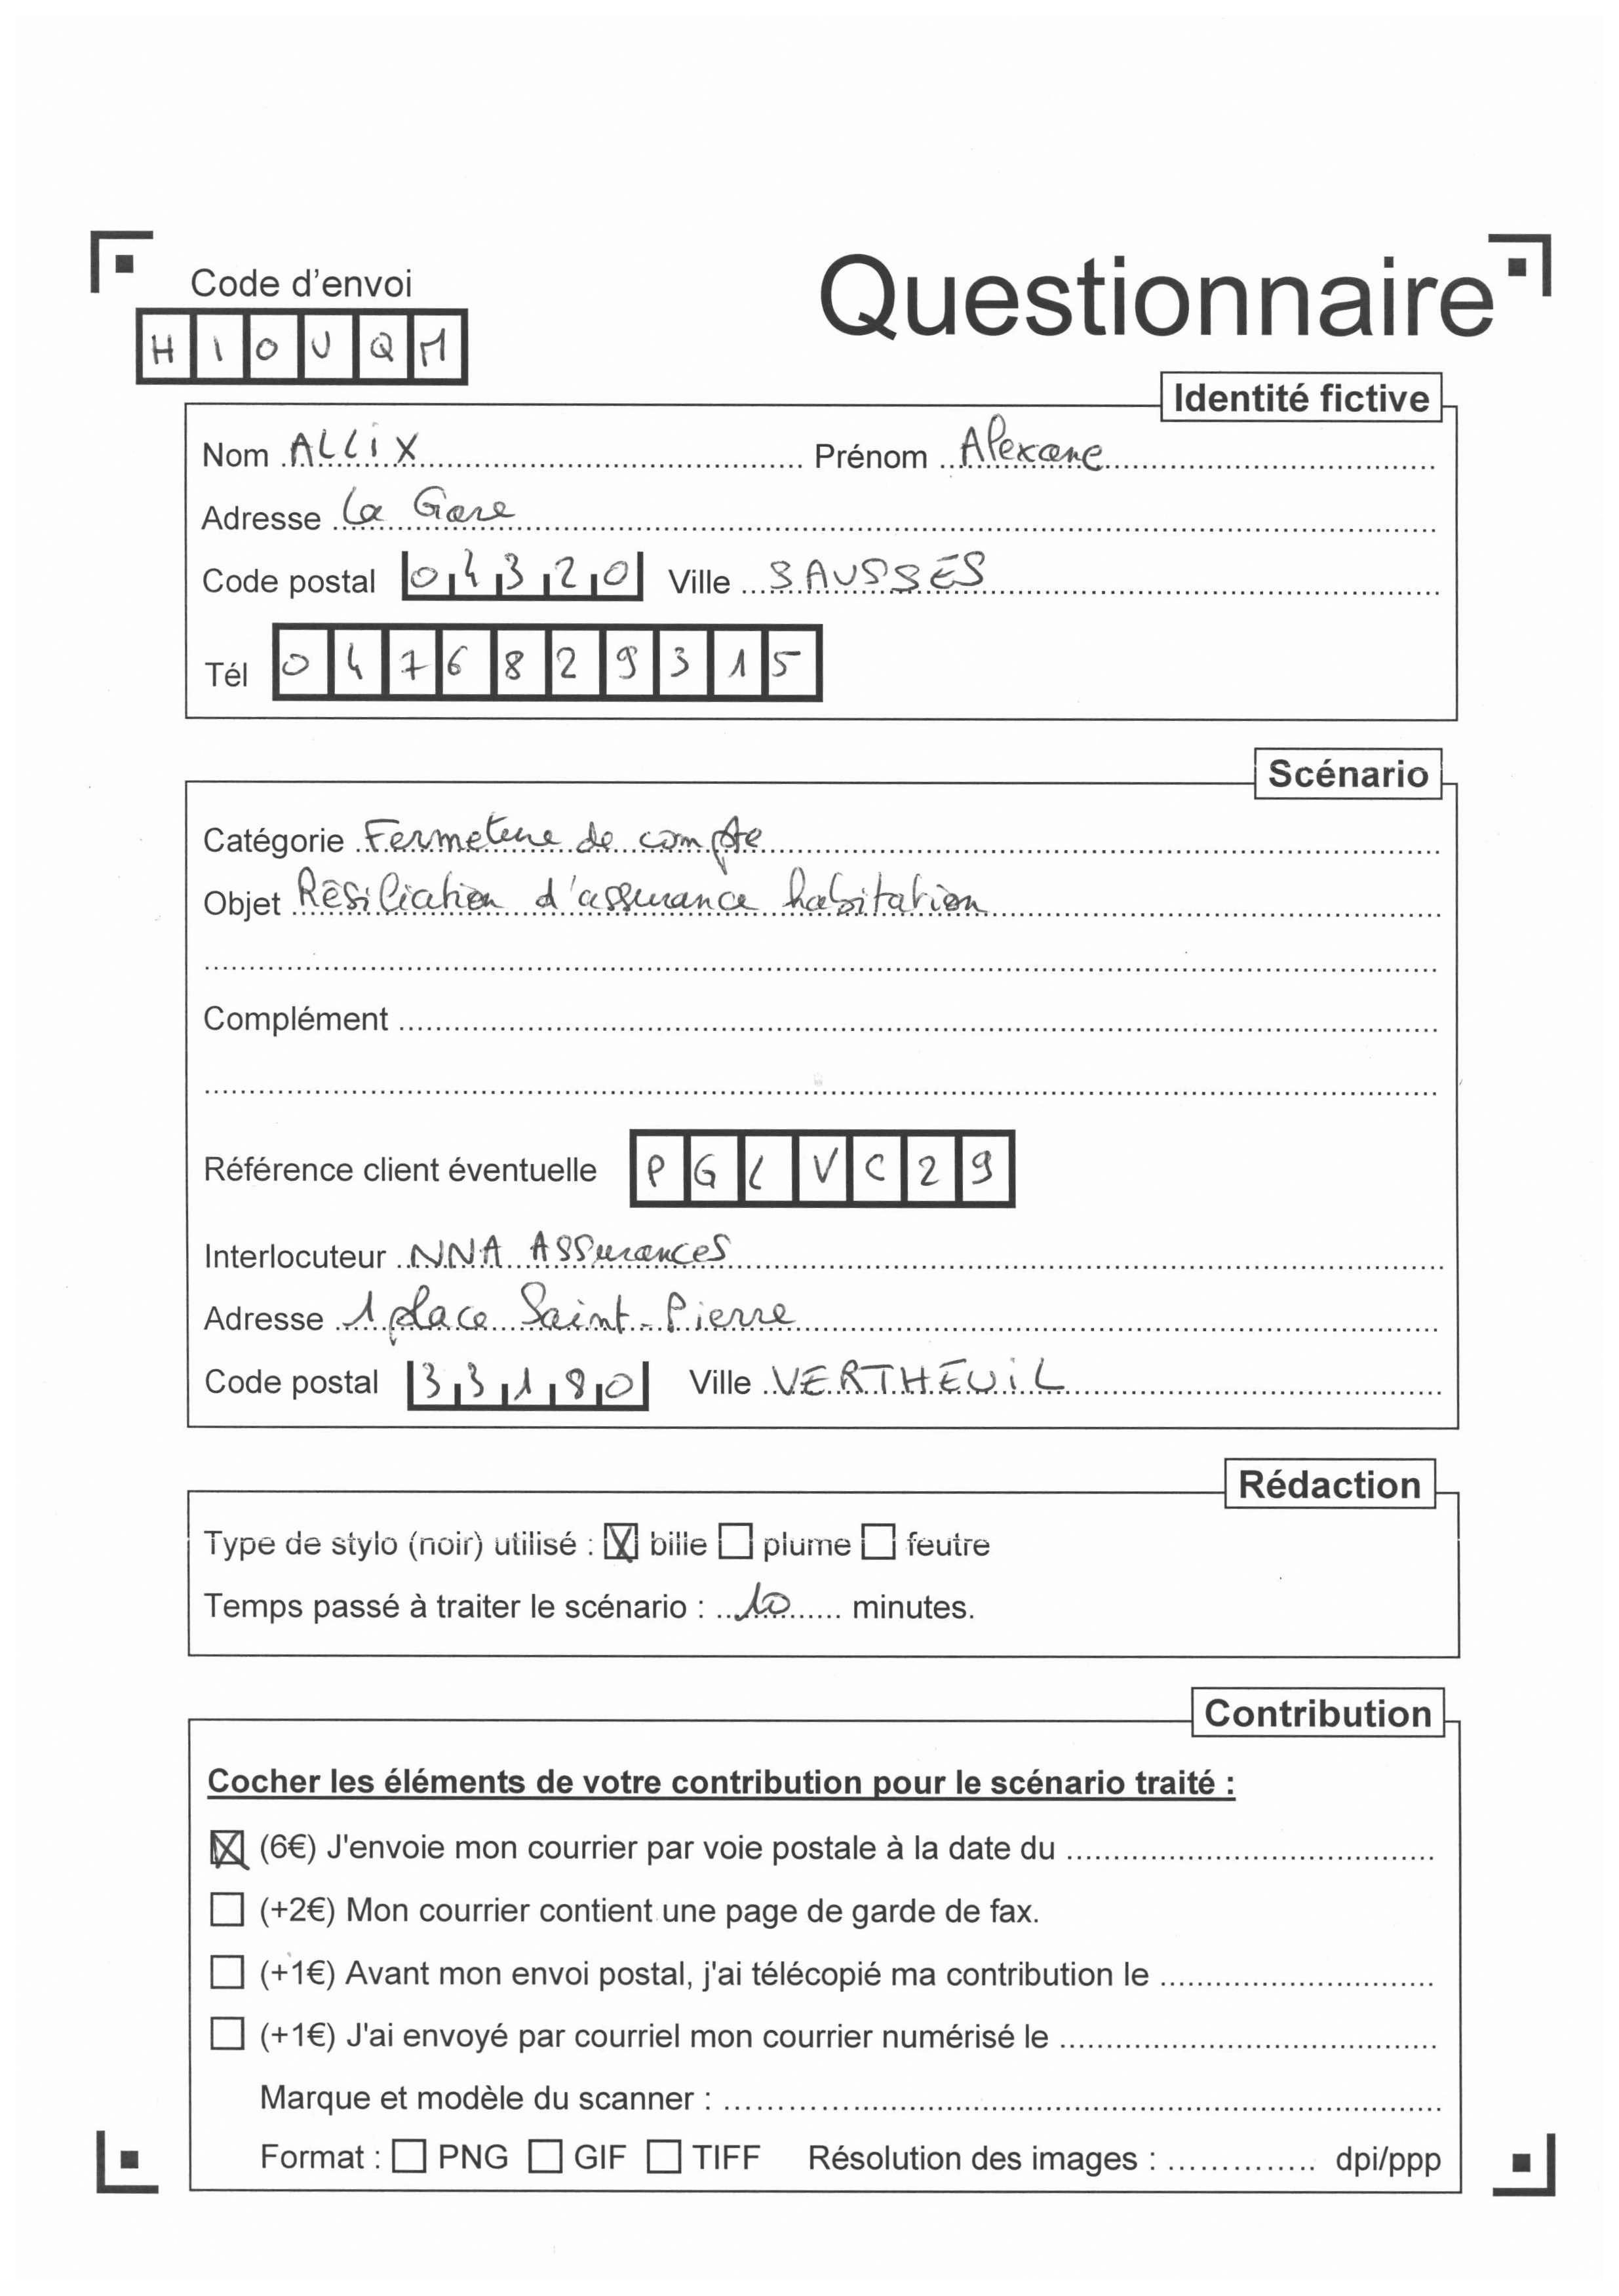 Code d'envoi
Questionnaire
H I O U Q M
Identité fictive
Nom ALLiX Prénom Alexane
Adresse La Gare
Code postal 04320 Ville SAUSSES
Tél 0476829315
Scénario
Catégorie Fermeture de compte
Objet Résiliation d'assurance habitation
Complément
Référence client éventuelle PGLVC29
Interlocuteur NNA ASSurances
Adresse 1 place Saint-Pierre
Code postal 33180 Ville VERTHEUiL
Rédaction
Type de stylo (noir) utilisé : ☒ bille ☐ plume ☐ feutre
Temps passé à traiter le scénario : 10 minutes.
Contribution
Cocher les éléments de votre contribution pour le scénario traité :
☒ (6€) J'envoie mon courrier par voie postale à la date du
☐ (+2€) Mon courrier contient une page de garde de fax.
☐ (+1€) Avant mon envoi postal, j'ai télécopié ma contribution le
☐ (+1€) J'ai envoyé par courriel mon courrier numérisé le
Marque et modèle du scanner :
Format : ☐ PNG ☐ GIF ☐ TIFF Résolution des images : dpi/ppp